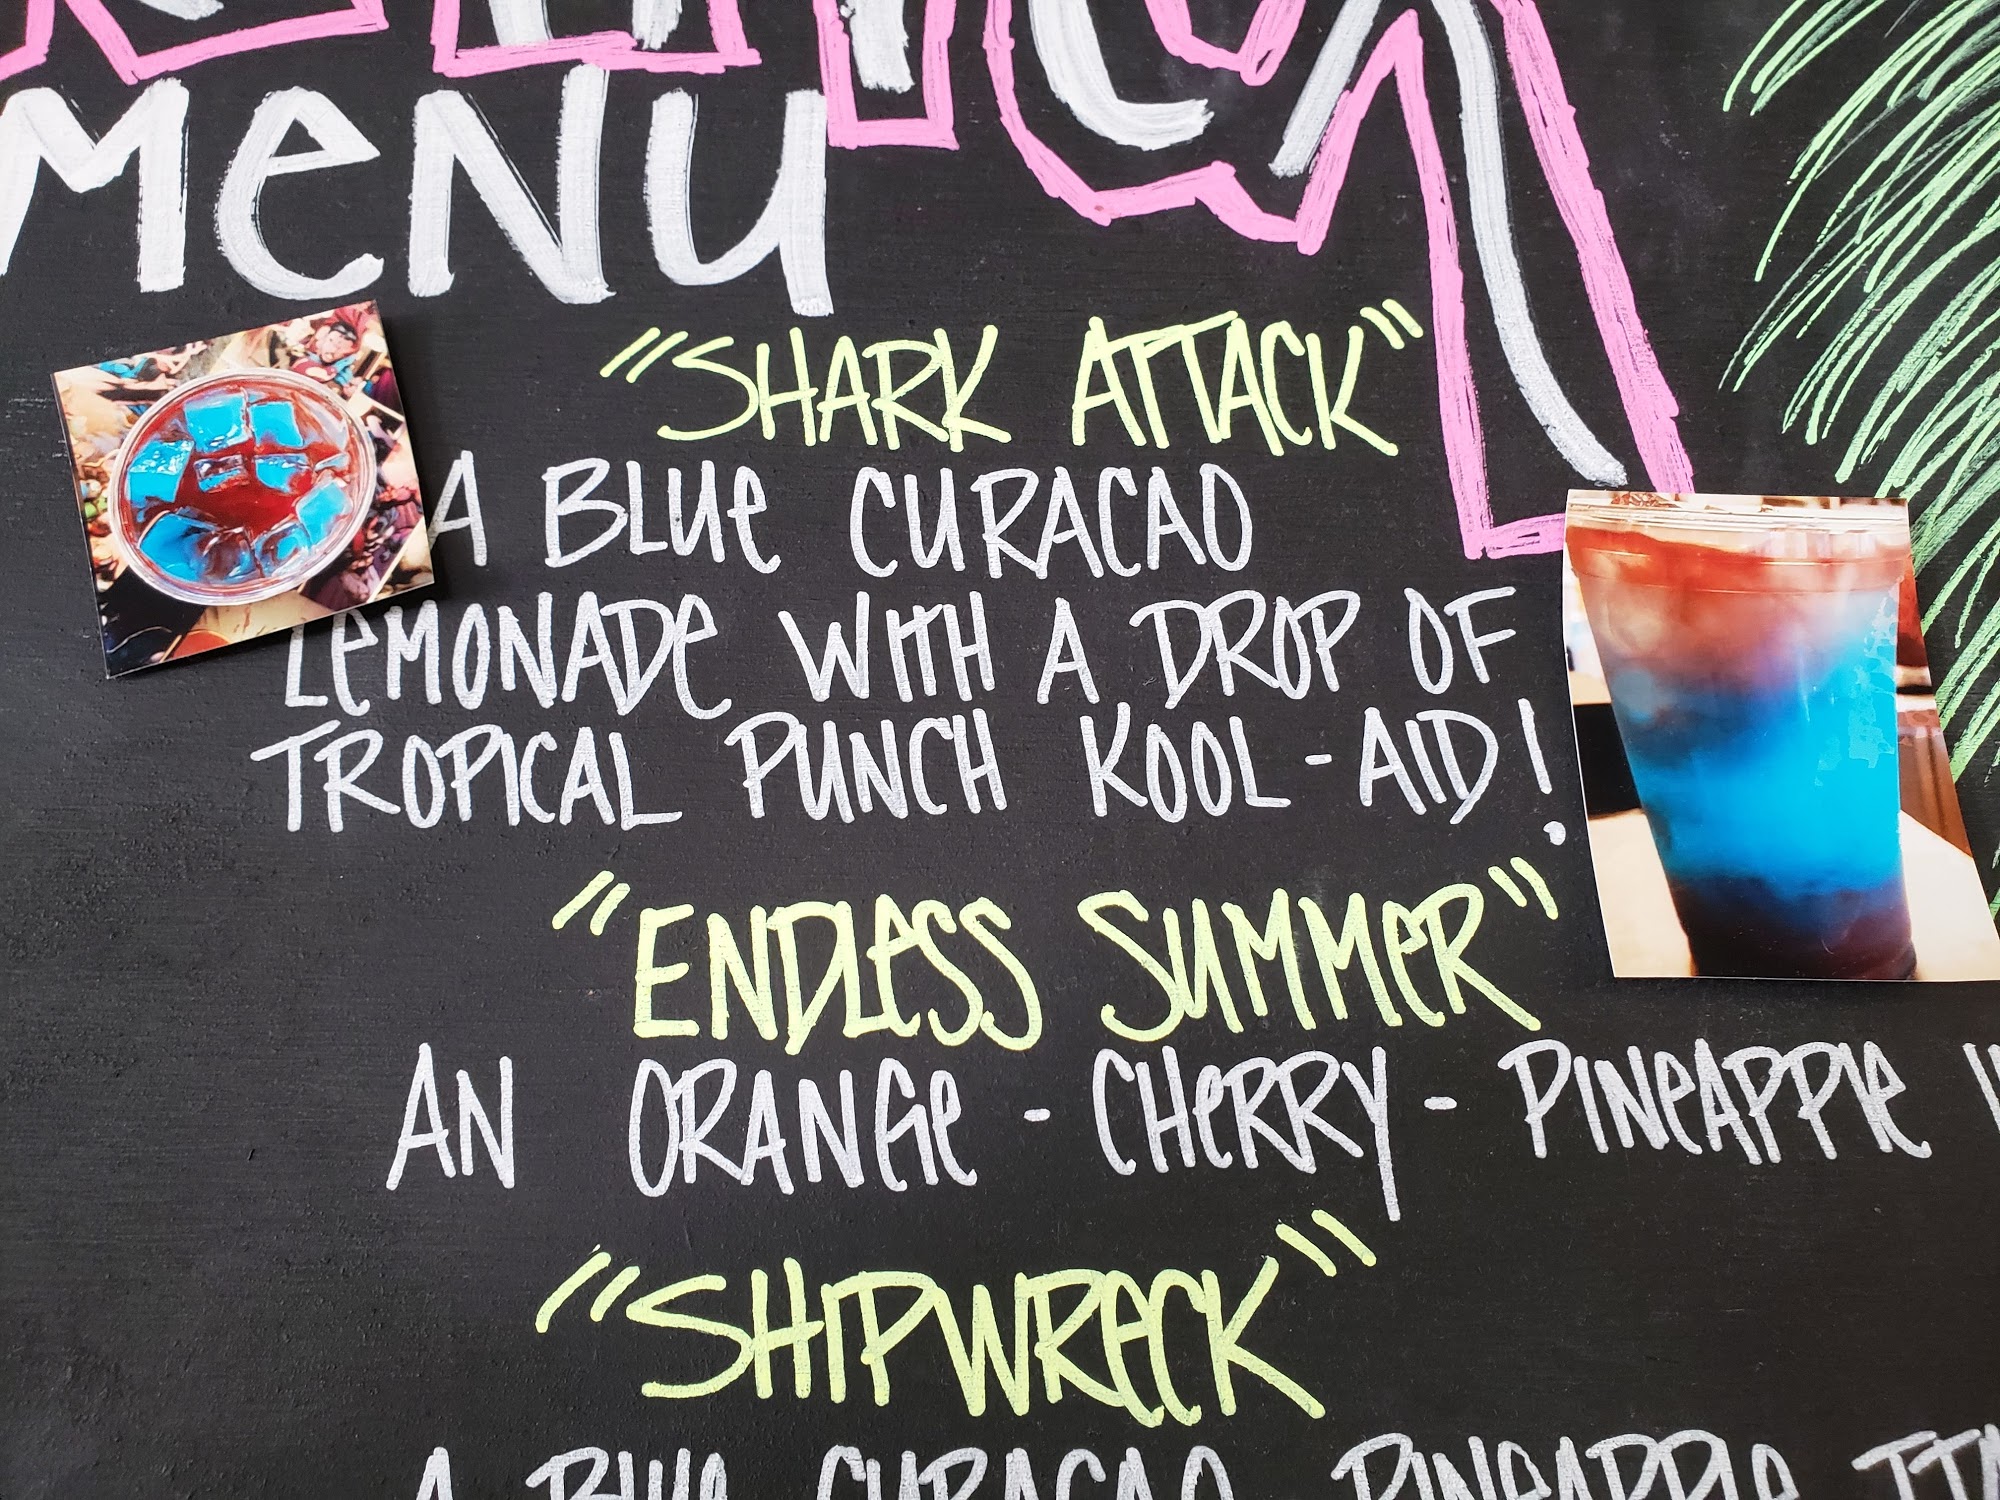 MENU
"SHARK ATTACK"
A BLUE CURACAO
LEMONADE WITH A DROP OF
TROPICAL PUNCH KOOL-AID!
"ENDLESS SUMMER"
AN ORANGE-CHERRY-PINEAPPLE
"SHIPWRECK"
A BLUE CURACAO PINEAPPLE